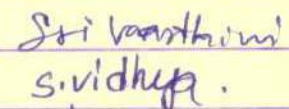 Sri Vaasthini
S.vidhya.